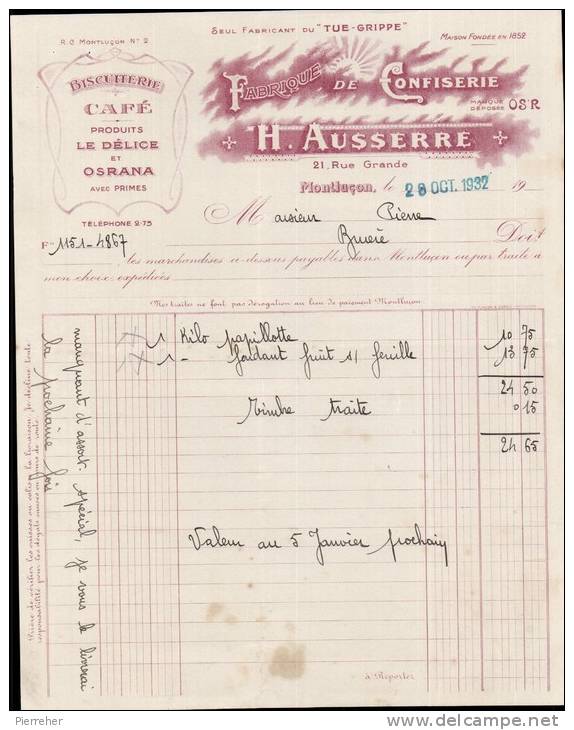 R.C. Montluçon N° 2
Seul Fabricant du "TUE-GRIPPE"
Maison Fondée en 1852
Biscuiterie
CAFÉ
PRODUITS
LE DÉLICE
ET
OSRANA
AVEC PRIMES
TÉLÉPHONE 2-75
Fabrique de Confiserie
MARQUE DÉPOSÉE OS'R
H. AUSSERRE
21, Rue Grande
Montluçon, le 28 OCT. 1932 19
Monsieur Pierre
Doit
Fo 1151-4867
les marchandises ci-dessous payables dans Montluçon ou par traite à
mon choix, expédiées
Nos traites ne font pas dérogation au lieu de paiement Montluçon
1 Kilo papillotte 10 75
1 - fondant fruit s/ feuille 13 75
24 50
Timbre traite 0 15
24 65
Valeur au 5 Janvier prochain
manquant d'assort. spécial, je vous le livrerai
la prochaine fois
Prière de vérifier les caisses ou colis à la livraison. Je décline toute
responsabilité pour les dégâts ou avaries en cours de route.
à Reporter
Pierreher
delcampe.net